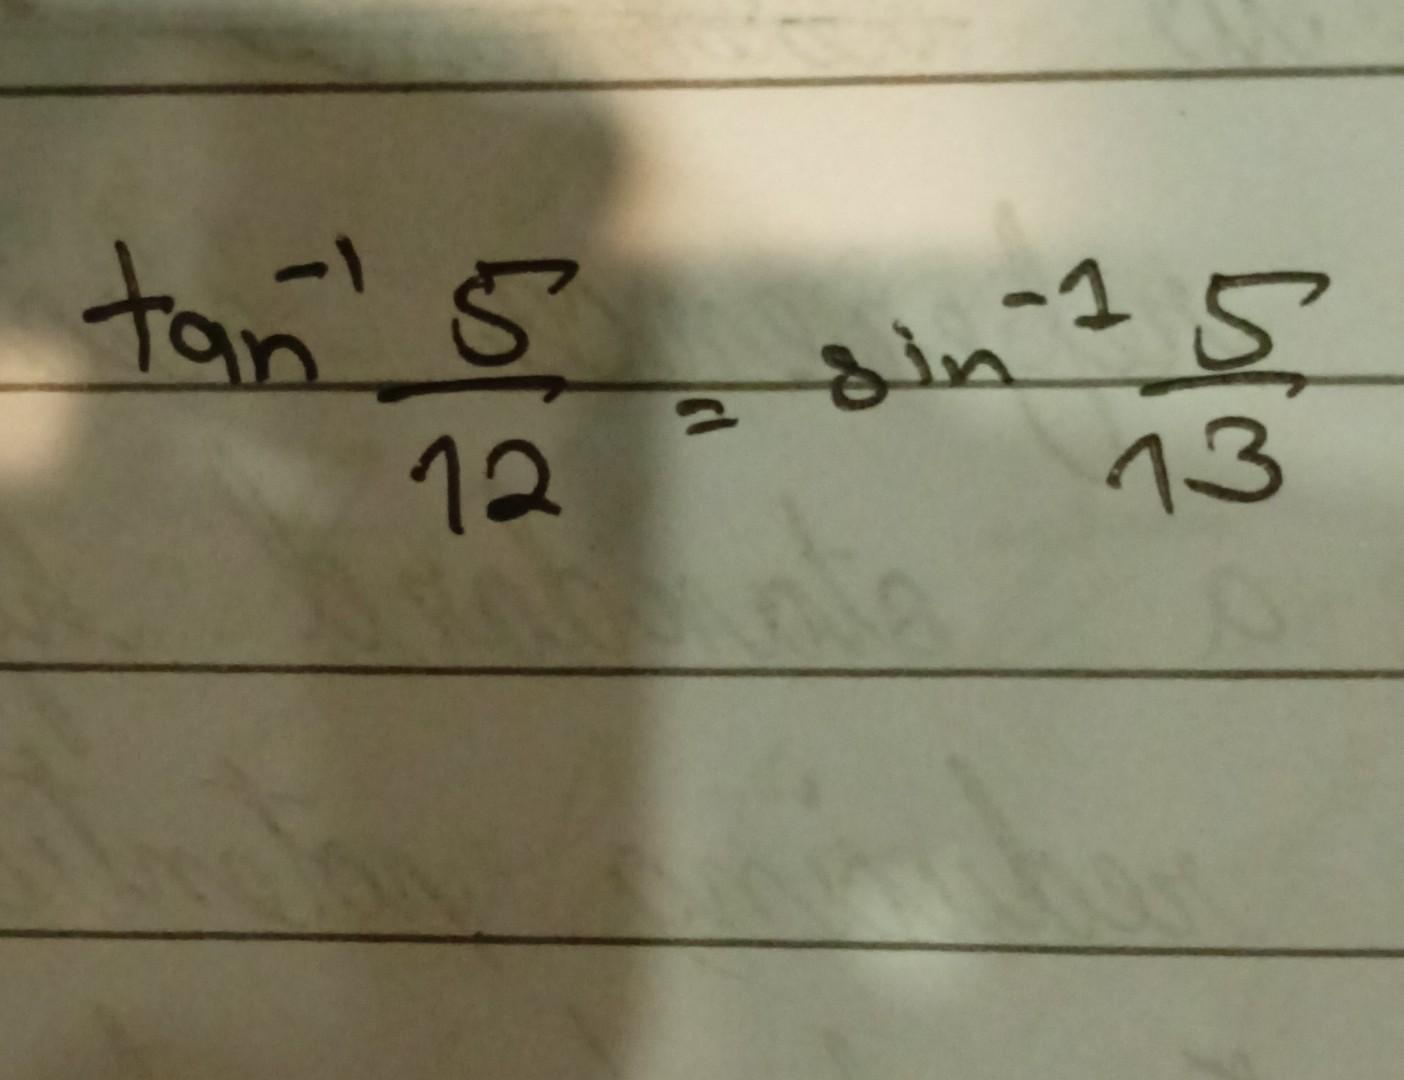 tan⁻¹ 5/12 = sin⁻¹ 5/13